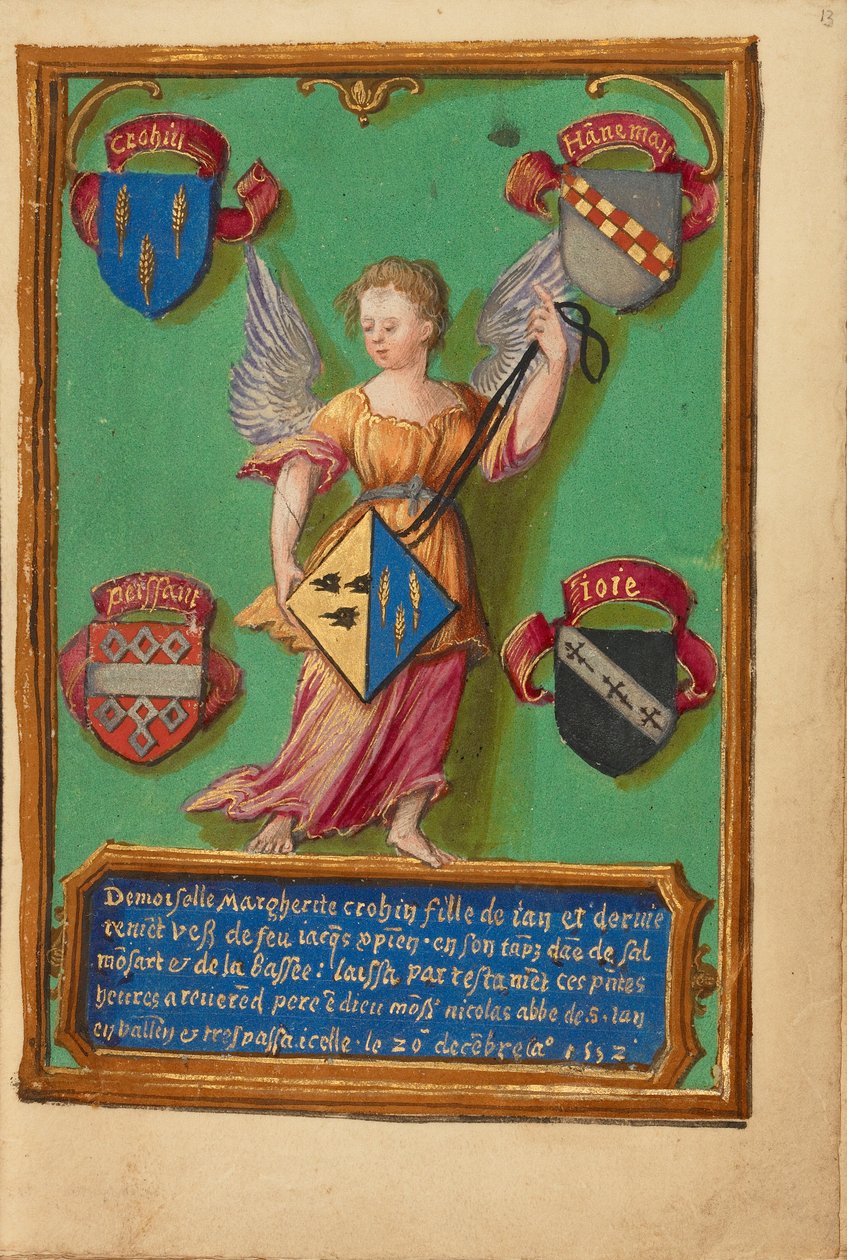 13
Crohin
Hānemau
peissant
ioie
Demoiselle Margherite crohin fille de ian et derme
remēt veß de feu iacq̄s xp̄ien · en son tāp̄z dāe de sal
mōsart & de la Bassee : laissa par testamēt ces pn̄tes
heures a reuerēd pere ē dieu mōsſʳ nicolas abbe de · s · ian
en vallēn & trespassa icelle · le 20ᵒ decēbre lāᵒ 1552